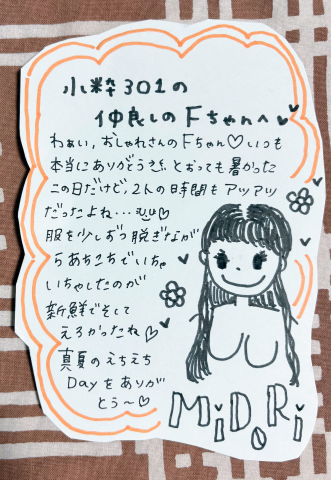 小粋301の
仲良しのFちゃんへ♥
わぁい,おしゃれさんのFちゃん♡いつも
本当にありがとうとっても暑かった
この日だけど,2人の時間もアツアツ
だったよね…♡
服を少しずつ脱ぎながら
あちこちでいちゃ
いちゃしたのが
新鮮でそして
えろかったね♡
真夏のえちえち
Dayをありが
とう〜♡
MiDoRi